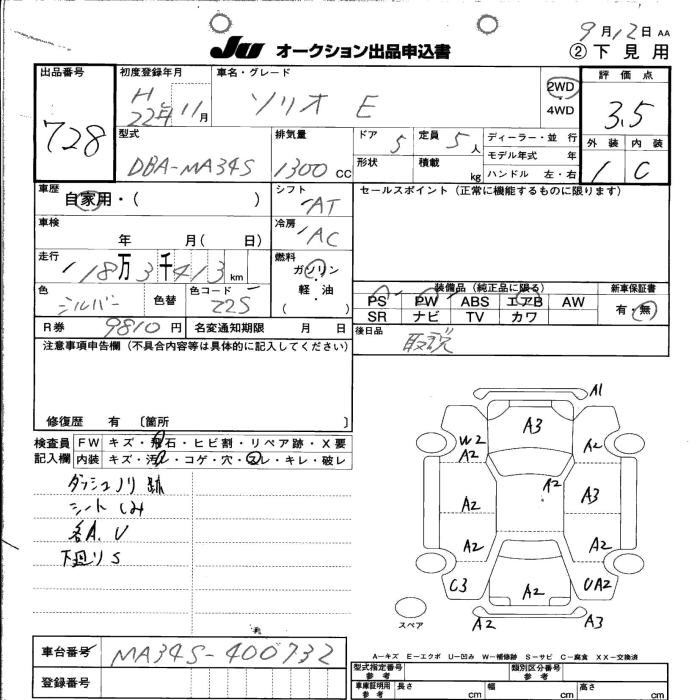 9月12日 AA
JU オークション出品申込書 ②下見用
出品番号 初度登録年月 車名・グレード 評価点
728 H 22年11月 ソリオ E 2WD 4WD 3.5
型式 排気量 ドア 5 定員 5人 ディーラー・並行 外装 内装
DBA-MA34S 1300cc 形状 積載 kg モデル年式 年 1 C
ハンドル 左・右
車歴 自家用・( ) シフト AT セールスポイント(正常に機能するものに限ります)
車検 年 月( 日) 冷房 AC
走行 118万3千413km 燃料 ガソリン
色 シルバー 色替 色コード Z2S 軽・油 ( ) 装備品(純正品に限る) 新車保証書
PS PW ABS エアB AW 有・無
SR ナビ TV カワ
R券 9810円 名変通知期限 月 日 後日品 取説
注意事項申告欄(不具合内容等は具体的に記入してください)
修復歴 有 〔箇所 〕
検査員記入欄 FW キズ・飛石・ヒビ割・リペア跡・X要
内装 キズ・汚レ・コゲ・穴・スレ・キレ・破レ
ダッシュノリ跡
シートしみ
各A、U
下廻りS
A1
A3
W2 A2 A2
A2
A2 A3
A2 A2
C3 A2 UA2
スペア A2 A3
車台番号 MA34S-400732
A-キズ E-エクボ U-凹み W-補修跡 S-サビ C-腐食 XX-交換済
登録番号
型式指定番号 参考 類別区分番号 参考
車庫証明用 参考 長さ cm 幅 cm 高さ cm